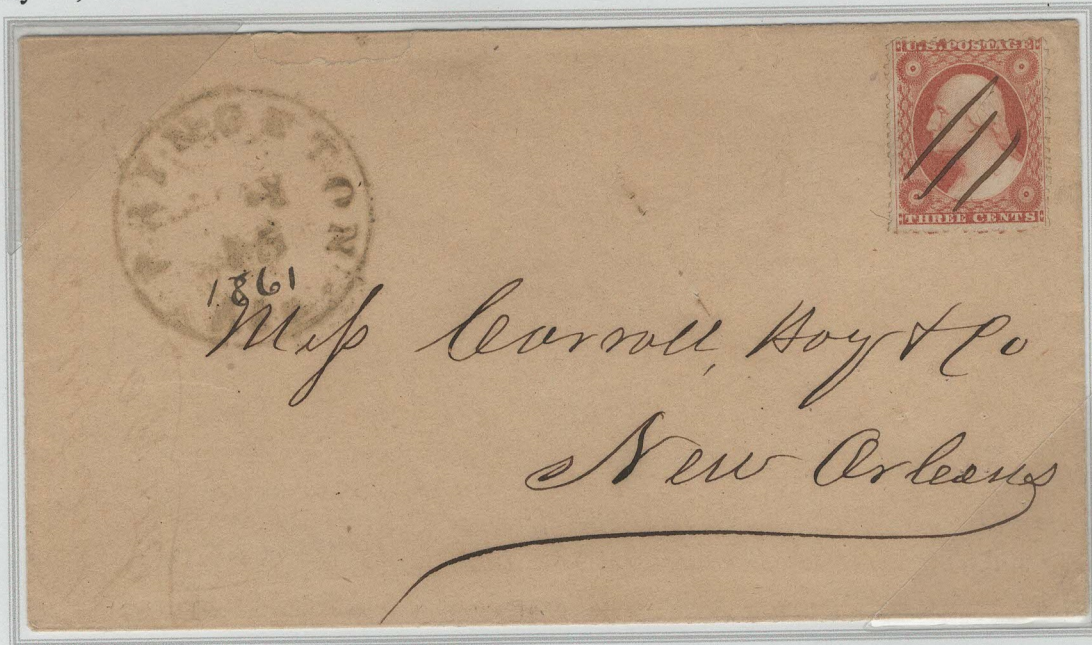 U.S. POSTAGE
THREE CENTS
1861
Mess Carroll, Hoy & Co
New Orleans